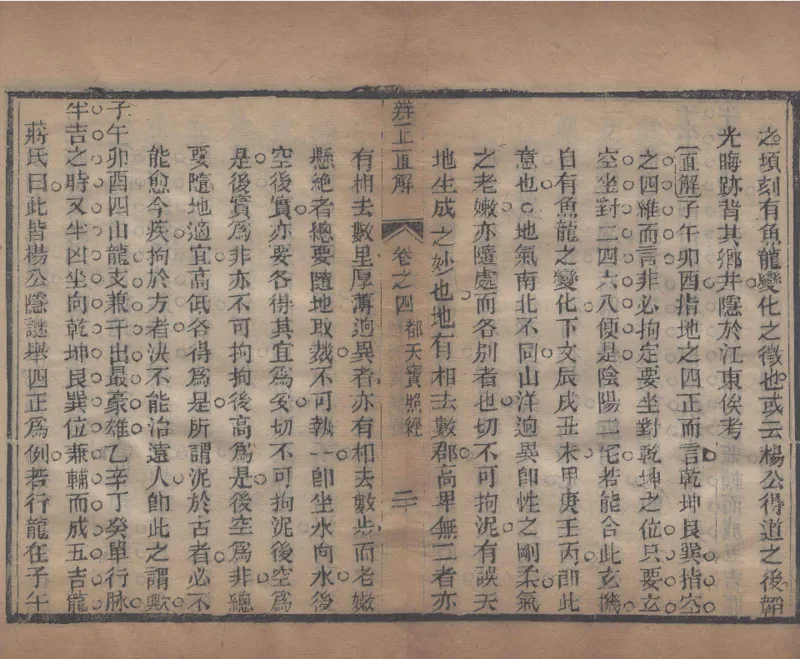 之頃刻有魚龍變化之徵也或云楊公得道之後韜
光晦跡背其鄉井隱於江東俟考
直解子午卯酉指地之四正而言乾坤艮巽指空
之四維而言非必拘定要坐對乾坤之位只要玄
空坐對二四六八便是陰陽二宅若能合此玄機
自有魚龍之變化下文辰戌丑未甲庚壬丙卽此
意也地氣南北不同山洋逈異卽性之剛柔氣
之老嫩亦隨處而各別者也切不可拘泥有誤天
地生成之妙也地有相去數郡高卑無二者亦
辨正直解
卷之四 都天寶照經
二
有相去數里厚薄逈異者亦有相去數步而老嫩
懸絶者總要隨地取裁不可執一卽坐水向水後
空後實亦要各得其宜爲妥切不可拘泥後空爲
是後實爲非亦不可拘拘後高爲是後空爲非總
要隨地適宜高低各得爲是所謂泥於古者必不
能愈今疾拘於方者決不能治遠人卽此之謂歟
子午卯酉四山龍支兼干出最豪雄乙辛丁癸單行脉
半吉之時又半凶坐向乾坤艮巽位兼輔而成五吉龍
蔣氏曰此皆楊公隱謎舉四正爲例若行龍在子午